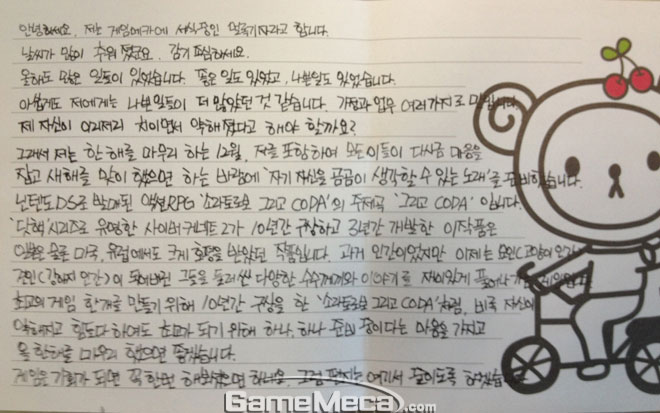 안녕하세요, 저는 게임메카에 서식중인 얼룩기자라고 합니다.
날씨가 많이 추워 졌군요. 감기 조심하세요.
올해도 많은 일들이 있었습니다. 좋은 일도 있었고, 나쁜일도 있었습니다.
아쉽게도 저에게는 나쁜일들이 더 많았던 것 같습니다. 가정과 업무 여러가지로 말입니다.
제 자신이 이리저리 치이면서 약해졌다고 해야 할까요?
그래서 저는 한 해를 마무리 하는 12월, 저를 포함하여 모든 이들이 다시금 마음을
잡고 새해를 맞이 했으면 하는 바람에 '자기 자신을 곰곰이 생각할 수 있는 노래'를 준비했습니다.
닌텐도DS로 발매된 액션RPG '소라토로보 그리고 CODA'의 주제곡 '그리고 CODA' 입니다.
'닷핵'시리즈로 유명한 사이버커넥트2가 10년간 구상하고 3년간 개발한 이 작품은
일본은 물론 미국, 유럽에서도 크게 호평을 받았던 작품입니다. 과거 인간이었지만 이제는 묘인(고양이 인간)
견인(강아지 인간)이 되어버린 그들을 둘러싼 다양한 수수께끼와 이야기로 재미있게 풀어나가는 게임입니다.
최고의 게임 한개를 만들기 위해 10년간 구상을 한 '소라토로보 그리고 CODA'처럼, 비록 자신이
약해지고 힘들다 하여도 최고가 되기 위해 하나, 하나 준비 중이다는 마음을 가지고
올 한해를 마무리 했으면 좋겠습니다.
게임은 기회가 되면 꼭 한번 해보셨으면 하네요. 그럼 편지는 여기서 줄이도록 하겠습니다.
GameMeca.com